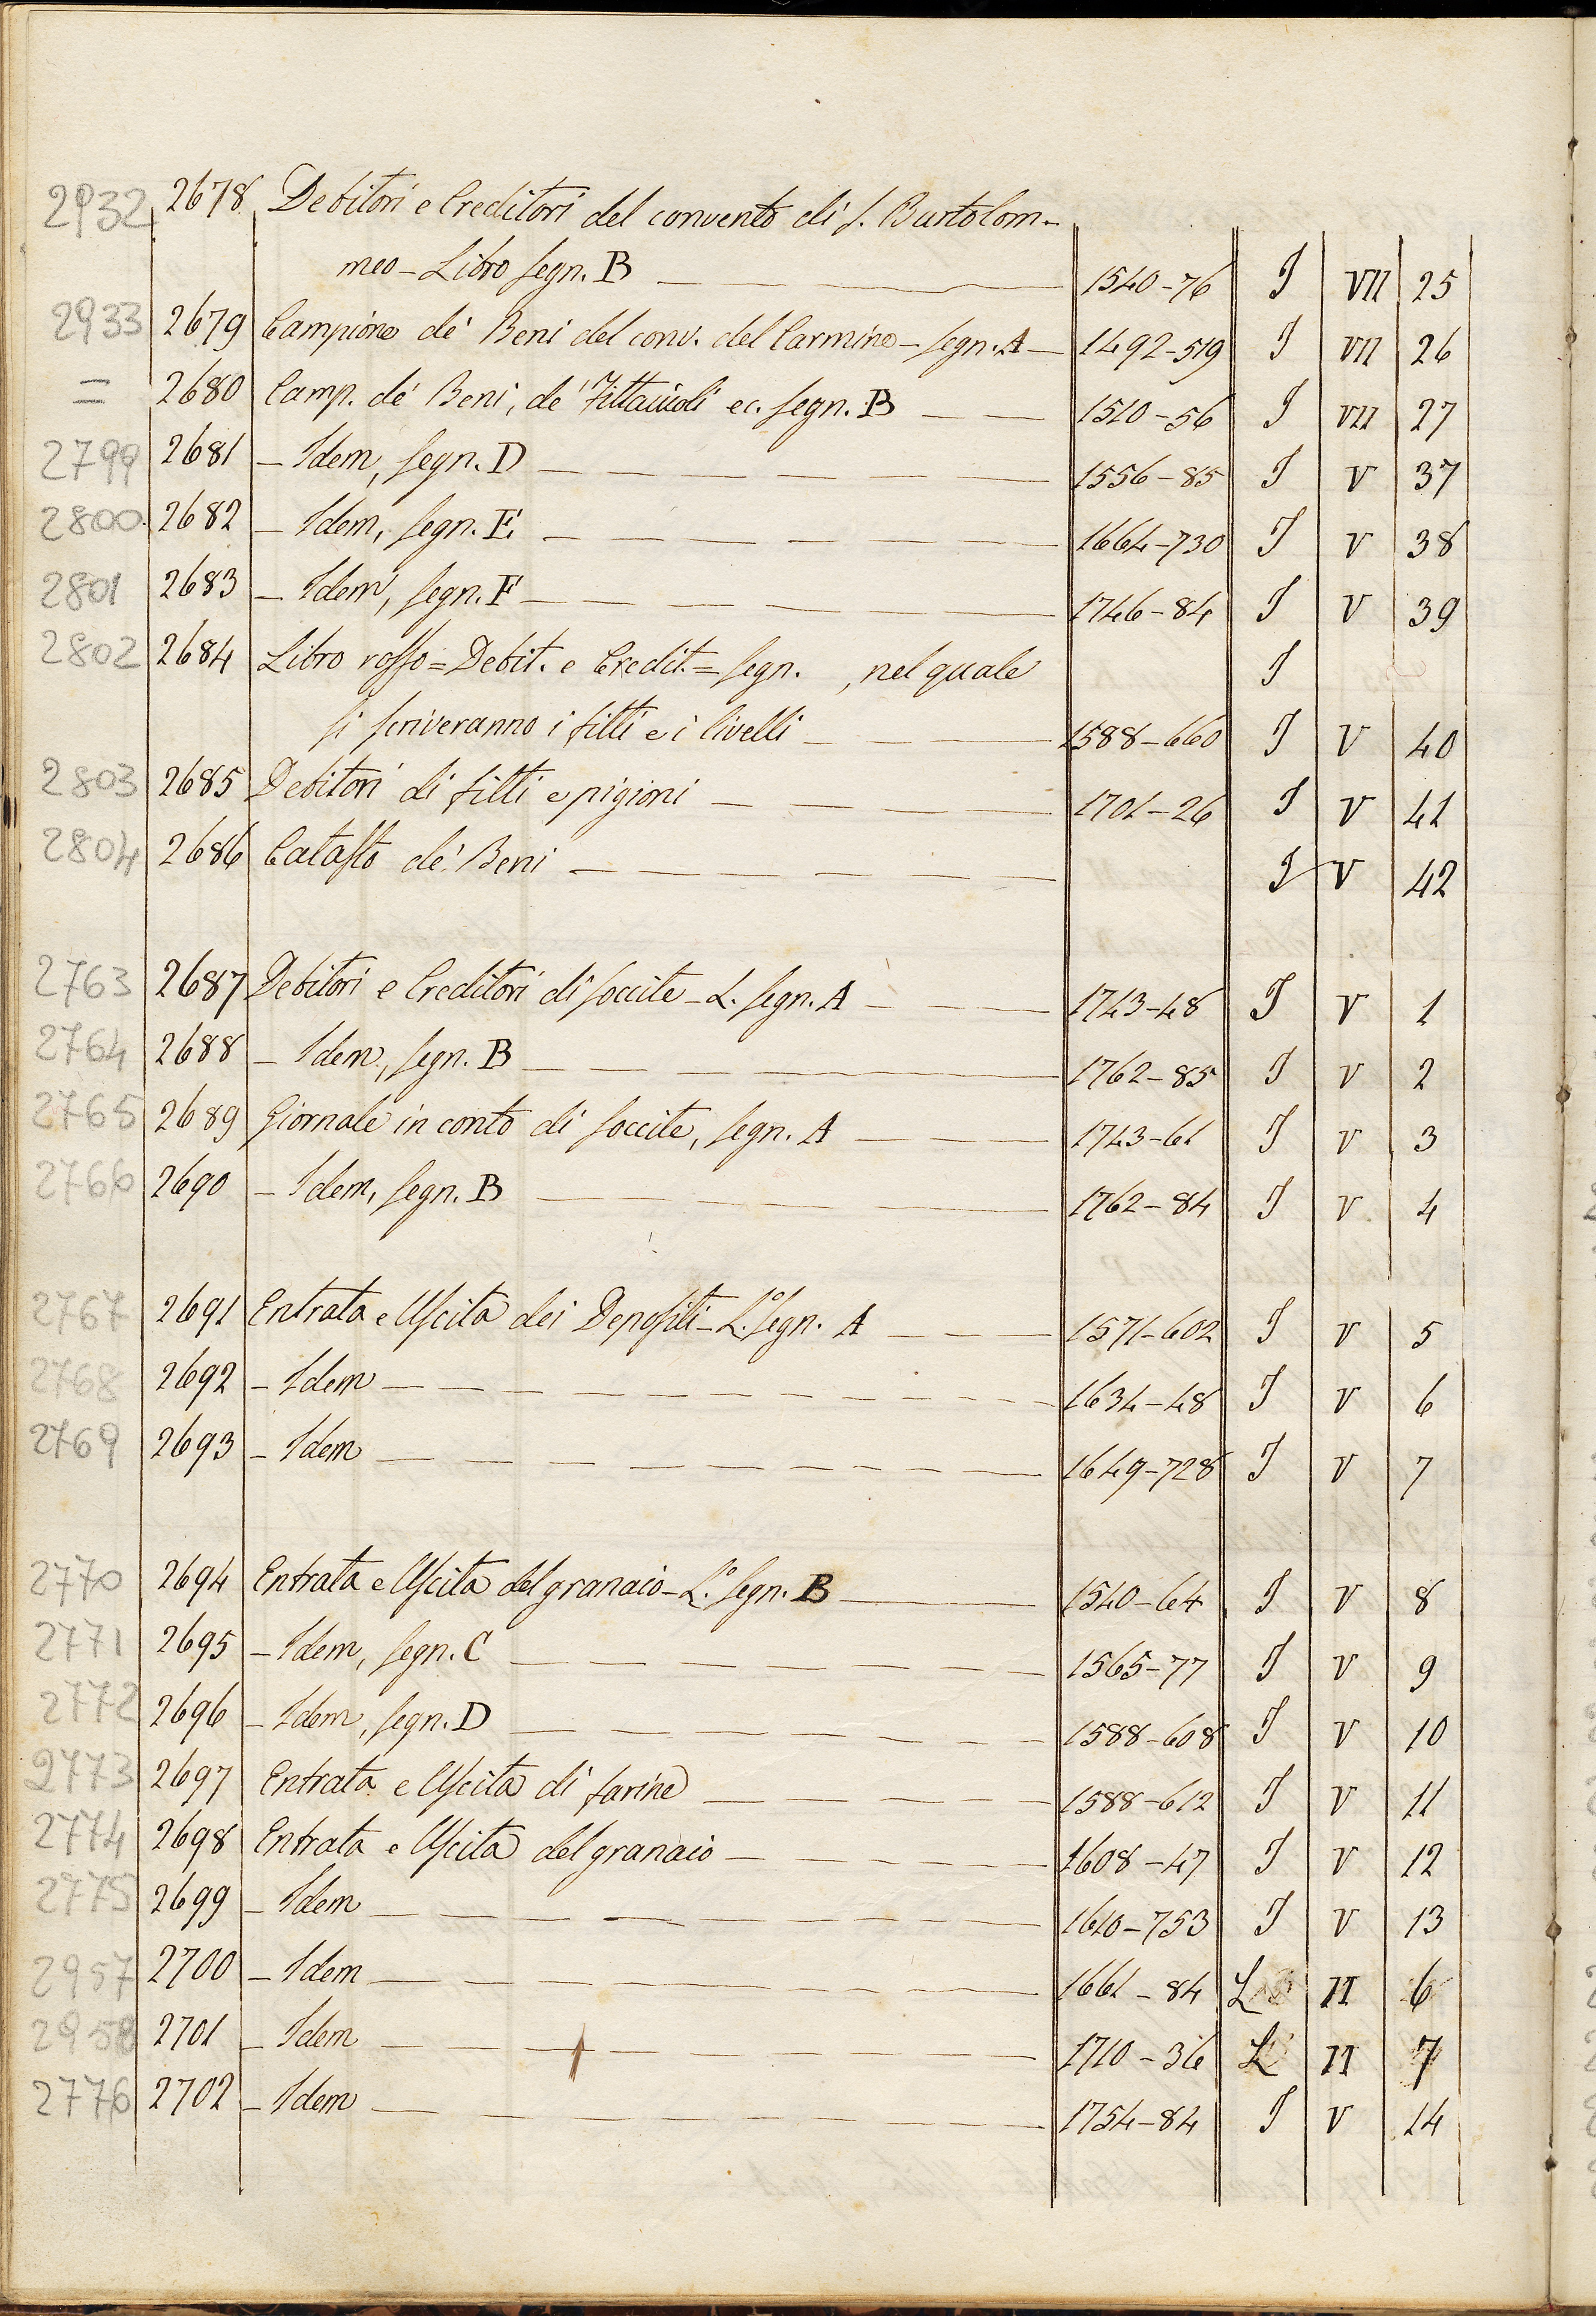 2932 2678 Debitori e Creditori del convento di S. Bartolom-
meo - Libro segn. B 1540-76 I VII 25
2933 2679 Campione de' Beni del conv. del Carmine - segn. A 1492-519 I VII 26
= 2680 Camp. de' Beni, de' Fittaiuoli ec. segn. B 1510-56 I VII 27
2799 2681 - Idem, segn. D 1556-85 I V 37
2800 2682 - Idem, segn. E 1664-730 I V 38
2801 2683 - Idem, segn. F 1746-84 I V 39
2802 2684 Libro rosso = Debit. e Credit. = segn. , nel quale I
si scriveranno i fitti e i livelli 1588-660 I V 40
2803 2685 Debitori di fitti e pigioni 1701-26 I V 41
2804 2686 Catasto de' Beni I V 42
2763 2687 Debitori e Creditori di soccite - L. segn. A 1743-48 I V 1
2764 2688 - Idem, segn. B 1762-85 I V 2
2765 2689 Giornale in conto di soccite, segn. A 1743-61 I V 3
2766 2690 - Idem, segn. B 1762-84 I V 4
2767 2691 Entrata e Uscita dei Depositi - L.º segn. A 1571-602 I V 5
2768 2692 - Idem 1634-48 I V 6
2769 2693 - Idem 1649-728 I V 7
2770 2694 Entrata e Uscita del granaio - L.º segn. B 1540-64 I V 8
2771 2695 - Idem, segn. C 1565-77 I V 9
2772 2696 - Idem, segn. D 1588-608 I V 10
2773 2697 Entrata e Uscita di farine 1588-612 I V 11
2774 2698 Entrata e Uscita del granaio 1608-47 I V 12
2775 2699 - Idem 1610-753 I V 13
2957 2700 - Idem 1661-84 L II 6
2958 2701 - Idem 1710-36 L II 7
2776 2702 - Idem 1754-84 I V 14